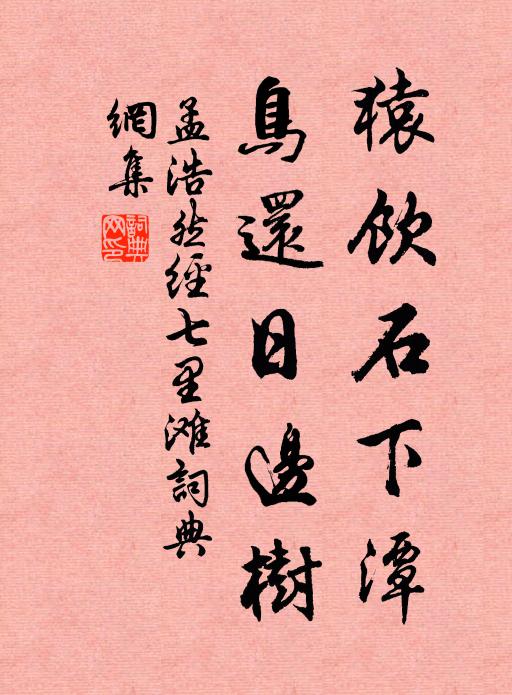 猿飲石下潭
鳥還日邊樹
孟浩然經七里滩詞典
網集
詞典
网印